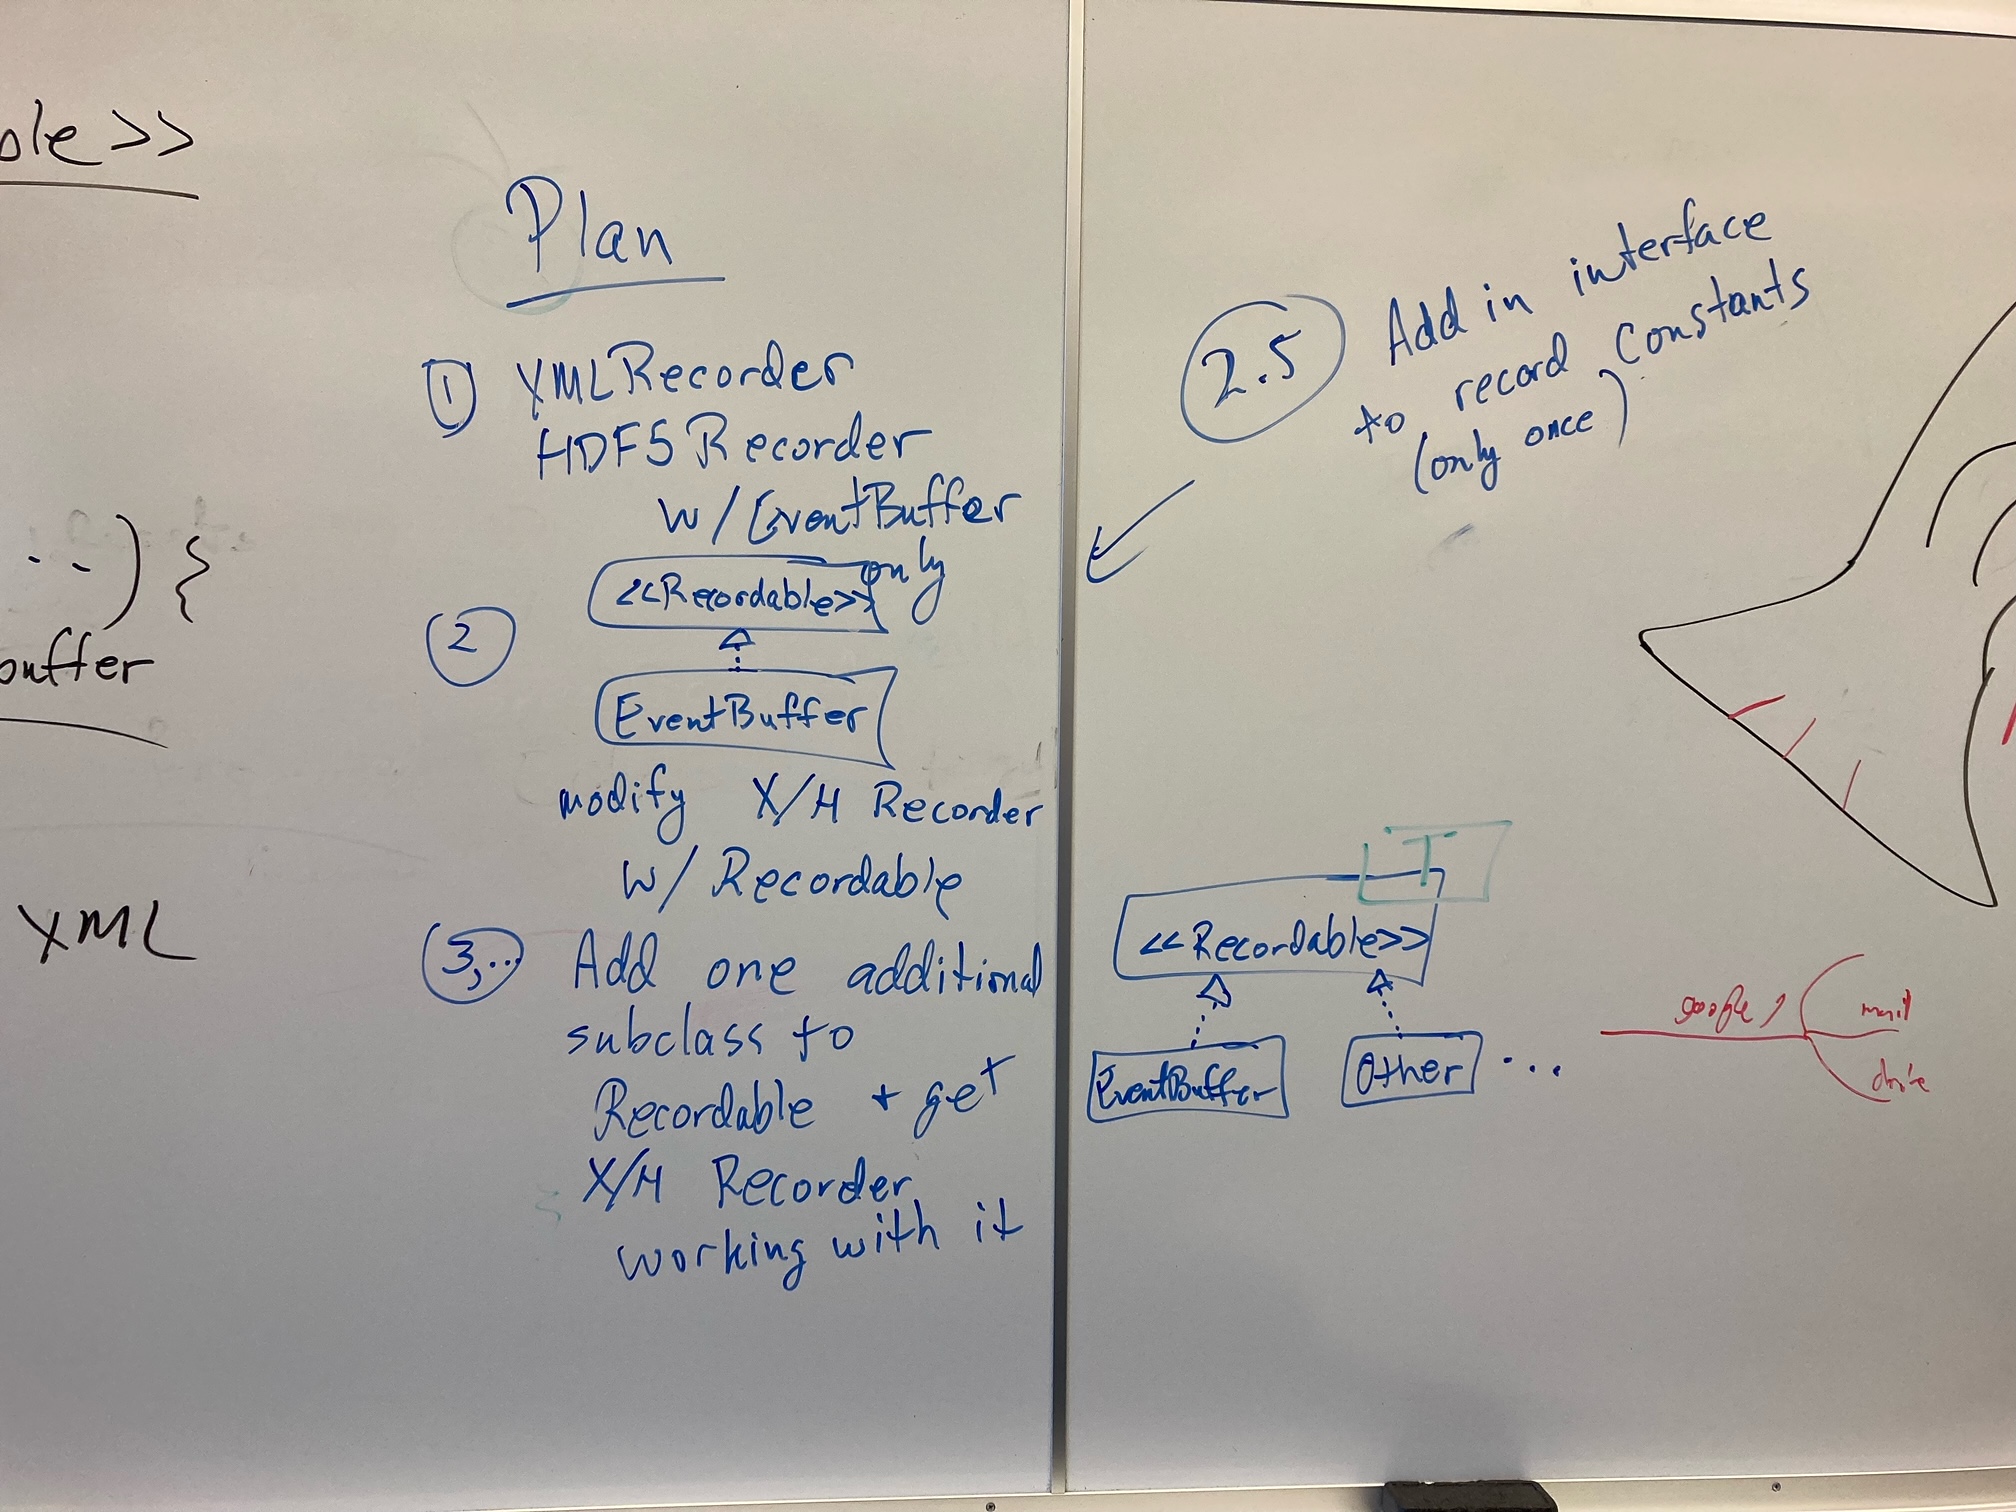 ble >>
. . - ) {
buffer
XML
Plan
1 XMLRecorder
HDF5 Recorder
w/ EventBuffer
only
2
<<Recordable>>
EventBuffer
modify X/H Recorder
w/ Recordable
3,... Add one additional
subclass to
Recordable + get
X/H Recorder
working with it
2.5 Add in interface
to record constants
(only once)
T
<<Recordable>>
EventBuffer
Other ...
google /
mail
drive